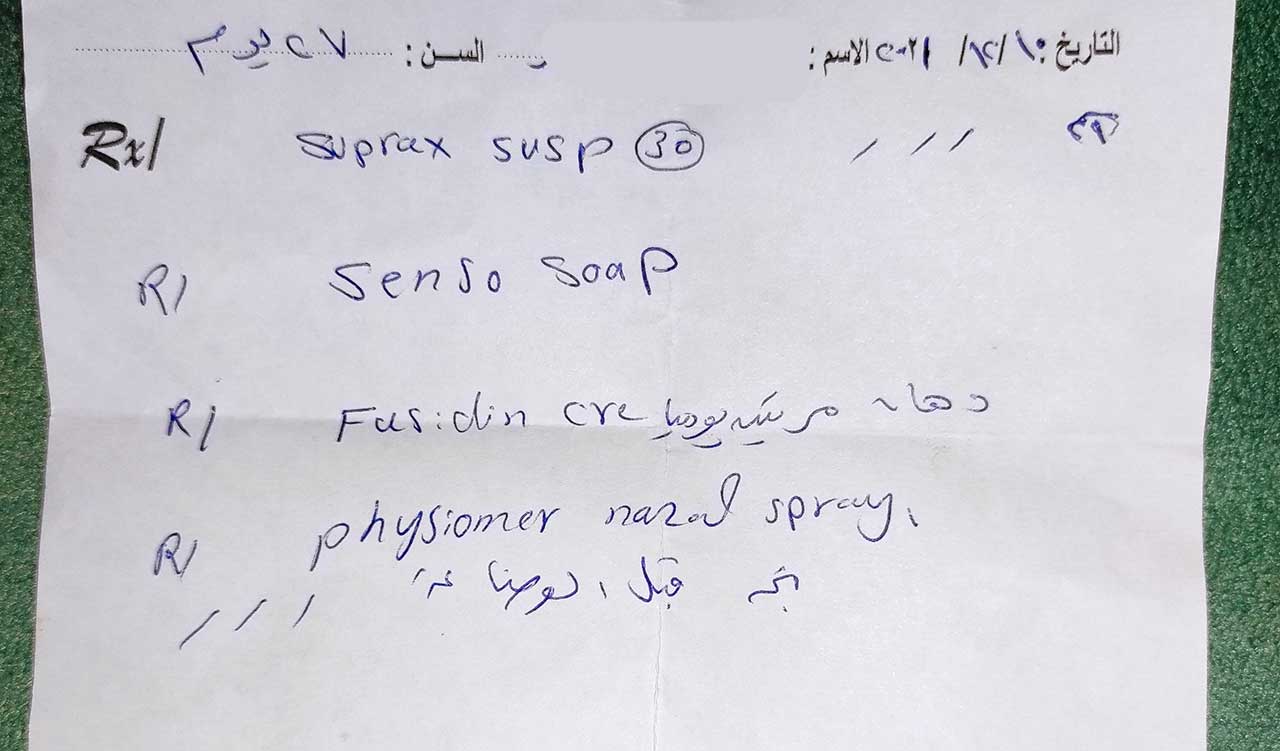 التاريخ: ١٠/١٢/٢٠٢١ الاسم: السن: ٢٧ يوم
Rx/ Suprax susp 30 / / /
R/ Senso soap
R/ Fusidin cre دهان مرتين يوميا
R/ physiomer nazal spray
بخه قبل الرضاعة
/ / /